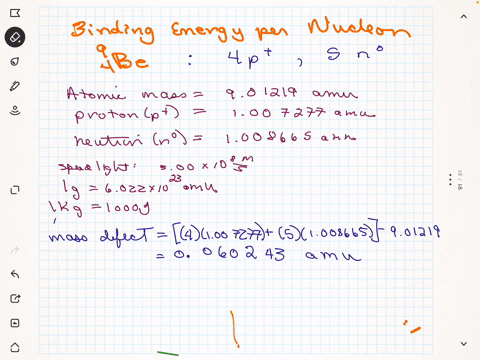 Binding Energy per Nucleon
⁹₄Be : 4p⁺, 5 n⁰
Atomic mass = 9.01219 amu
proton (p⁺) = 1.007277 amu
neutron (n⁰) = 1.008665 amu
speed light: 3.00 × 10⁸ m/s
1g = 6.022×10²³ amu
1Kg = 1000g
mass defect = [(4)(1.007277)+(5)(1.008665)] - 9.01219
= 0.060243 amu